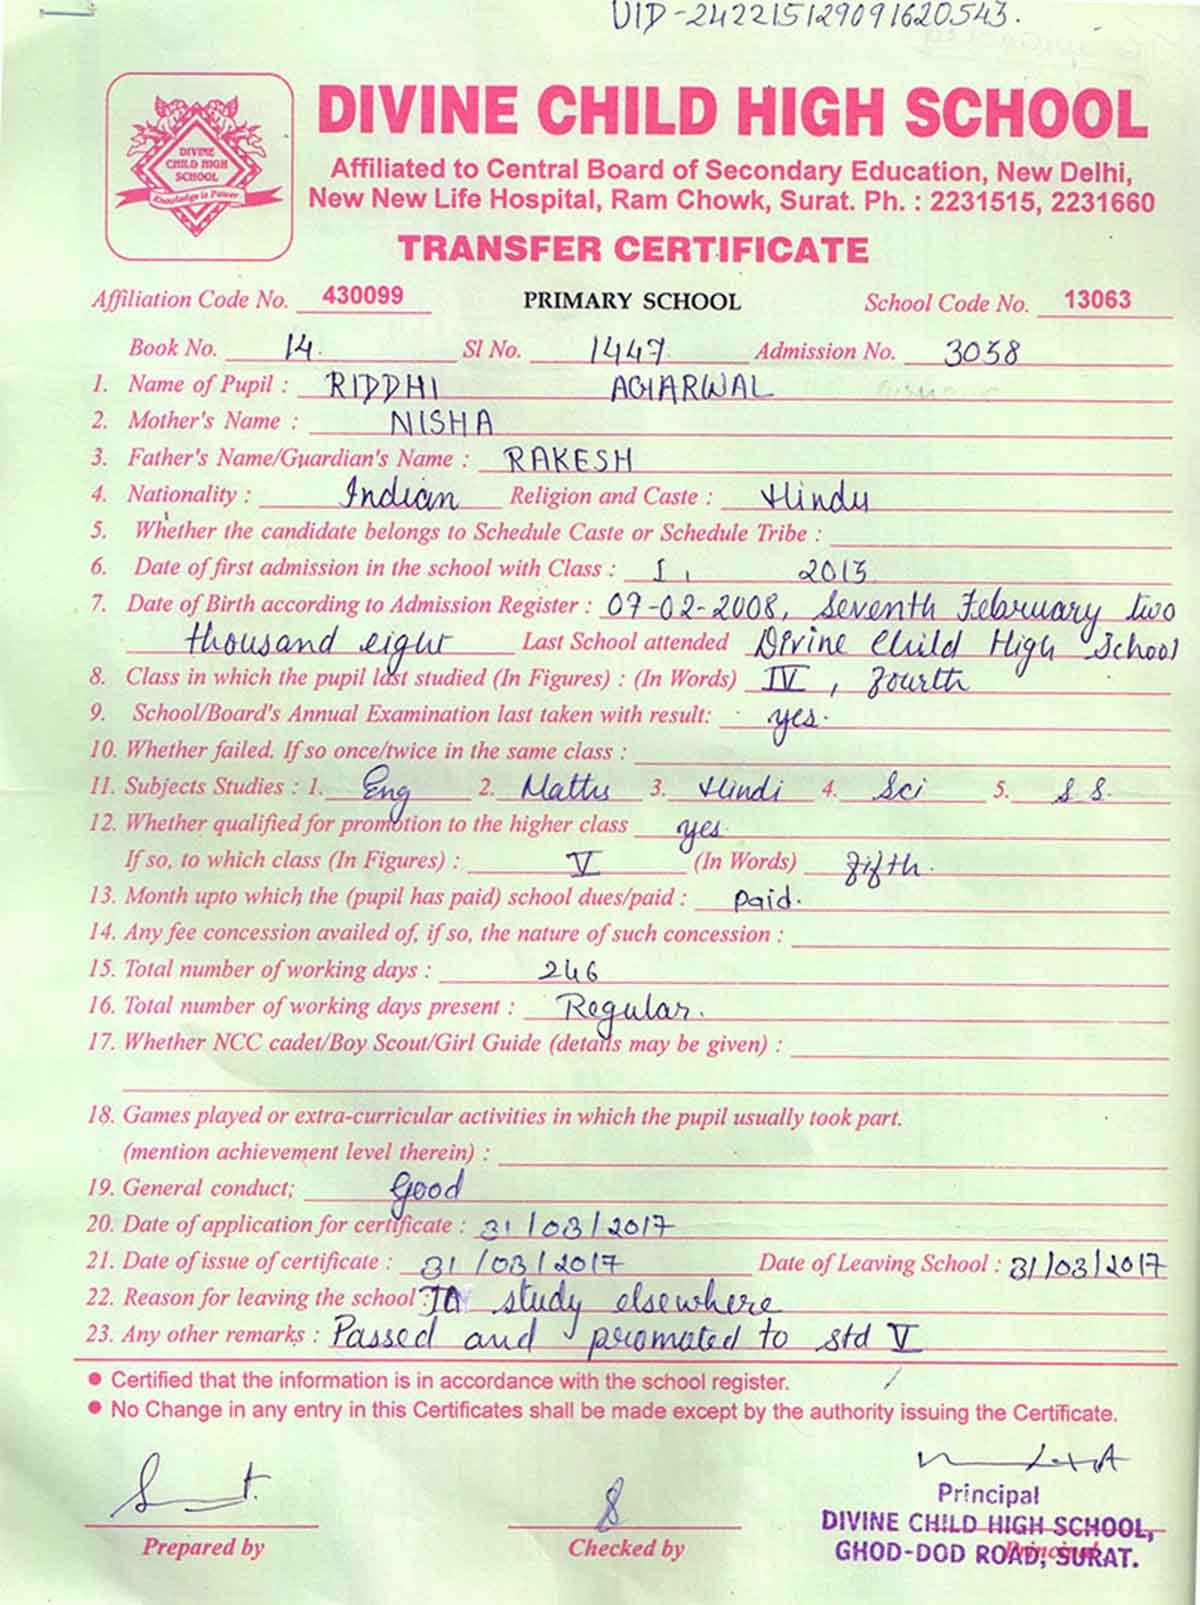 UID-242215129091620543.
DIVINE CHILD HIGH SCHOOL
DIVINE
CHILD HIGH
SCHOOL
Knowledge is Power
Affiliated to Central Board of Secondary Education, New Delhi,
New New Life Hospital, Ram Chowk, Surat. Ph. : 2231515, 2231660
TRANSFER CERTIFICATE
Affiliation Code No. 430099 PRIMARY SCHOOL School Code No. 13063
Book No. 14. Sl No. 1447 Admission No. 3038
1. Name of Pupil : RIDDHI AGHARWAL
2. Mother's Name : NISHA
3. Father's Name/Guardian's Name : RAKESH
4. Nationality : Indian Religion and Caste : Hindu
5. Whether the candidate belongs to Schedule Caste or Schedule Tribe :
6. Date of first admission in the school with Class : I, 2013
7. Date of Birth according to Admission Register : 07-02-2008, Seventh February two
thousand eight Last School attended Divine Child High School
8. Class in which the pupil last studied (In Figures) : (In Words) IV, fourth
9. School/Board's Annual Examination last taken with result: yes.
10. Whether failed. If so once/twice in the same class :
11. Subjects Studies : 1. Eng 2. Maths 3. Hindi 4. Sci 5. S S.
12. Whether qualified for promotion to the higher class yes
If so, to which class (In Figures) : V (In Words) fifth.
13. Month upto which the (pupil has paid) school dues/paid : paid.
14. Any fee concession availed of, if so, the nature of such concession :
15. Total number of working days : 246
16. Total number of working days present : Regular.
17. Whether NCC cadet/Boy Scout/Girl Guide (details may be given) :
18. Games played or extra-curricular activities in which the pupil usually took part.
(mention achievement level therein) :
19. General conduct; Good
20. Date of application for certificate : 31/03/2017
21. Date of issue of certificate : 31/03/2017 Date of Leaving School : 31/03/2017
22. Reason for leaving the school : To study elsewhere
23. Any other remarks : Passed and promoted to std V
• Certified that the information is in accordance with the school register.
• No Change in any entry in this Certificates shall be made except by the authority issuing the Certificate.
Principal
DIVINE CHILD HIGH SCHOOL,
GHOD-DOD ROAD, SURAT.
Prepared by Checked by Principal